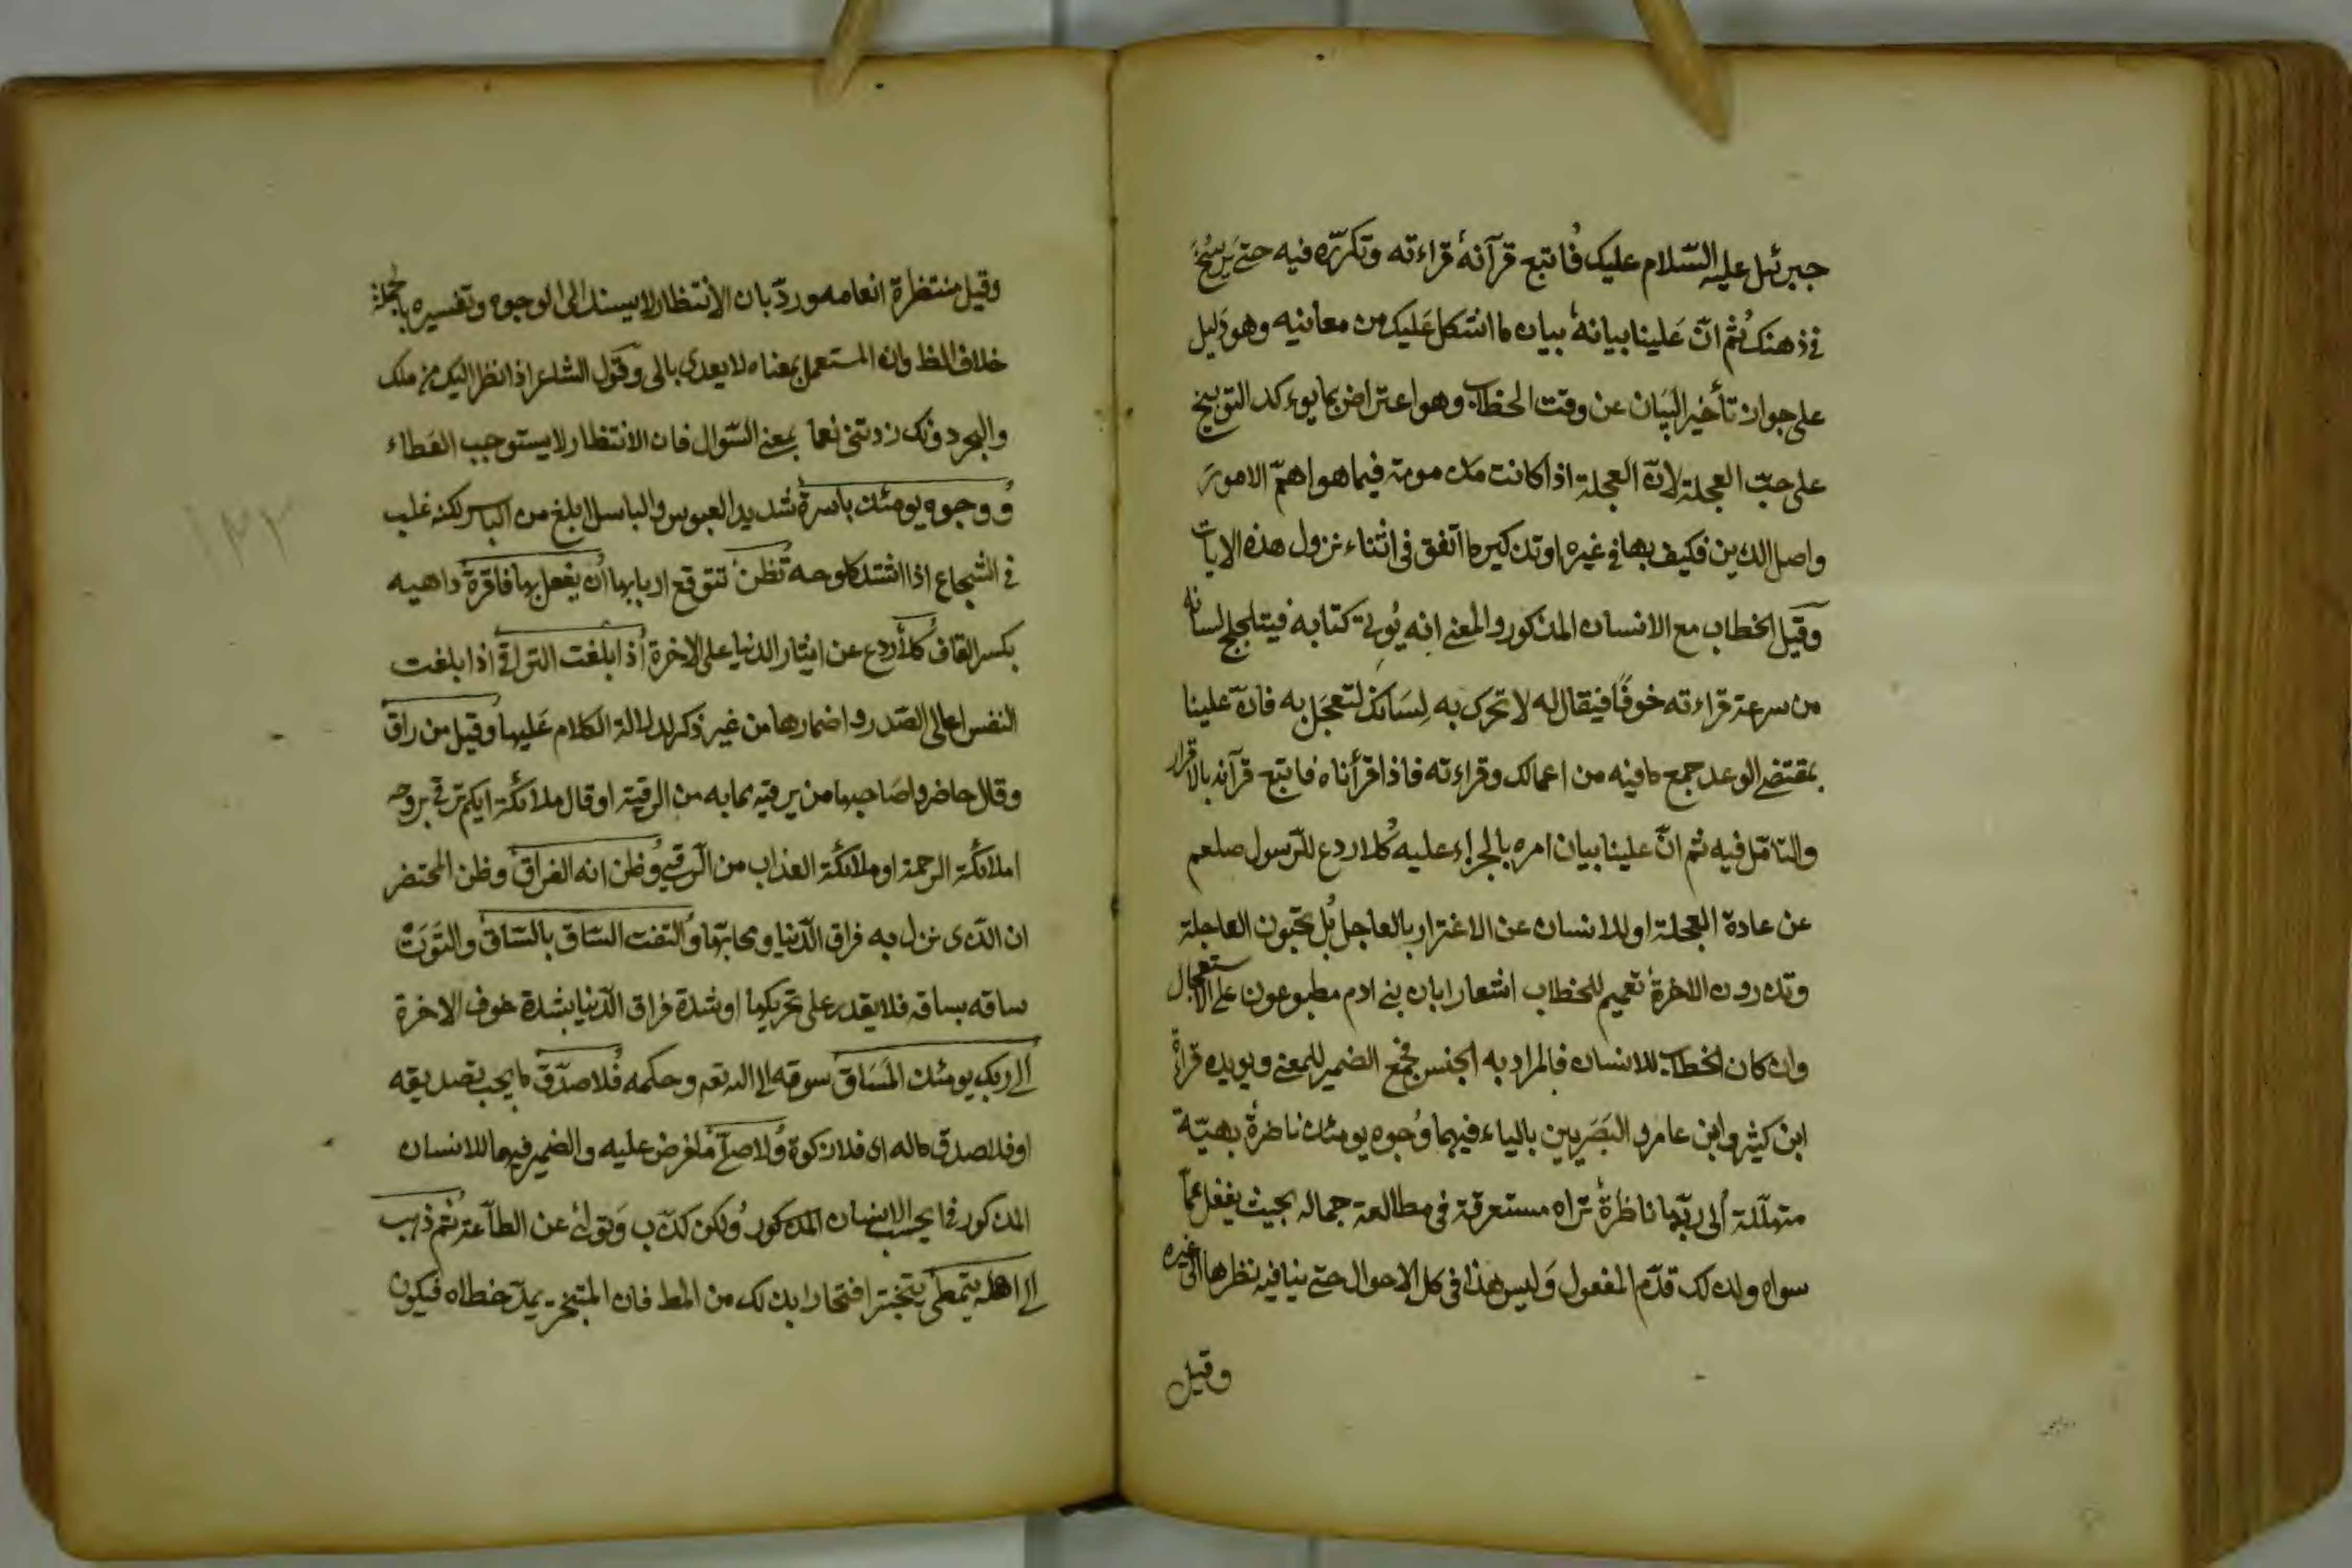 جبرئيل عليه السّلام عليك فاتبع قرآنه قراءته وتكرّره فيه حتى يرسخ
فى ذهنك ثم انّ علينا بيانه بيان ما اشكل عليك من معانيه وهو دليل
على جواز تأخير البيان عن وقت الخطاب وهو اعتراض بما يوءكد التوبيخ
على حبّ العجلة لانّ العجلة اذا كانت مذمومة فيما هو اهمّ الامور
واصل الدين فكيف بها فى غيره او تذكير ما اتفق فى اثناء نزول هذه الايات
وقيل الخطاب مع الانسان المذكور والمعنى انه يُوتى كتابه فيتلجلج لسانه
من سرعة قراءته خوفًا فيقال له لا تحرك به لسانك لتعجل به فانّ علينا
بمقتضى الوعد جمع ما فيه من اعمالك وقراءته فاذا قرأناه فاتبع قرآنه بالاقرار
والتامّل فيه ثم انّ علينا بيان امره بالجزاء عليه كلا ردع للرسول صلعم
عن عادة العجلة او للانسان عن الاغترار بالعاجل بل تحبون العاجلة
وتذرون الاخرة تعميم للخطاب اشعارا بان بنى ادم مطبوعون على الاستعجال
وان كان الخطاب للانسان فالمراد به الجنس فجمع الضمير للمعنى ويويده قراءة
ابن كيثر وابن عامر والبصريين بالياء فيهما وجوه يومئذ ناضرة بهيّة
متهلّلة الى ربّها ناظرة تراه مستغرقة فى مطالعة جماله بحيث يغفل عمّا
سواه ولذلك قدّم المفعول وليس هذا فى كل الاحوال حتى ينافيه نظرها الى غيره
وقيل
وقيل منتظرة انعامه وردّ بان الانتظار لا يسند الى الوجوه وتفسيره بالجملة
خلاف الظ وان المستعمل بمعناه لا يعدى بالى وقول الشاعر اذا نظر اليك من ملك
والبحر دونك زدتنى نعما بمعنى السّوال فان الانتظار لا يستوجب العطاء
ووجوه يومئذ باسرة شديد العبوس والباسل ابلغ من الباسر لكنه غلب
فى الشجاع اذا اشتد كلوحه تظن تتوقع اربابها ان يفعل بها فاقرة داهيه
بكسر القاف كلا ردع عن ايثار الدنيا على الاخرة اذا بلغت التراقى اذا بلغت
النفس اعالى الصّدر واضمارها من غير ذكر لدلالة الكلام عليها وقيل من راق
وقال حاضروا صاحبها من يرقيه بما به من الرقية او قال ملائكة ايكم ترقى بروحه
املائكة الرحمة او ملائكة العذاب من الرقى وظن انه الفراق وظن المحتضر
ان الذى نزل به فراق الدّنيا ومحابّها والتفت السّاق بالسّاق والتوت
ساقه بساقه فلا يقدر على تحريكها او شدة فراق الدّنيا بشدة خوف الاخرة
الى ربك يومئذ المساق سوقه الى الله تعم وحكمه فلا صدّق ما يجب تصديقه
او فلا صدق ماله اى فلا زكوة ولا صلى ما فرض عليه والضمير فيهما للانسان
المذكور فى ايحسب الانسان المذكور ولكن كذّب وتولى عن الطاعة ثم ذهب
الى اهله يتمطى يتبختر افتخارا بذلك من المط فان المتبختر يمدّ خطاه فيكون
١٣٢